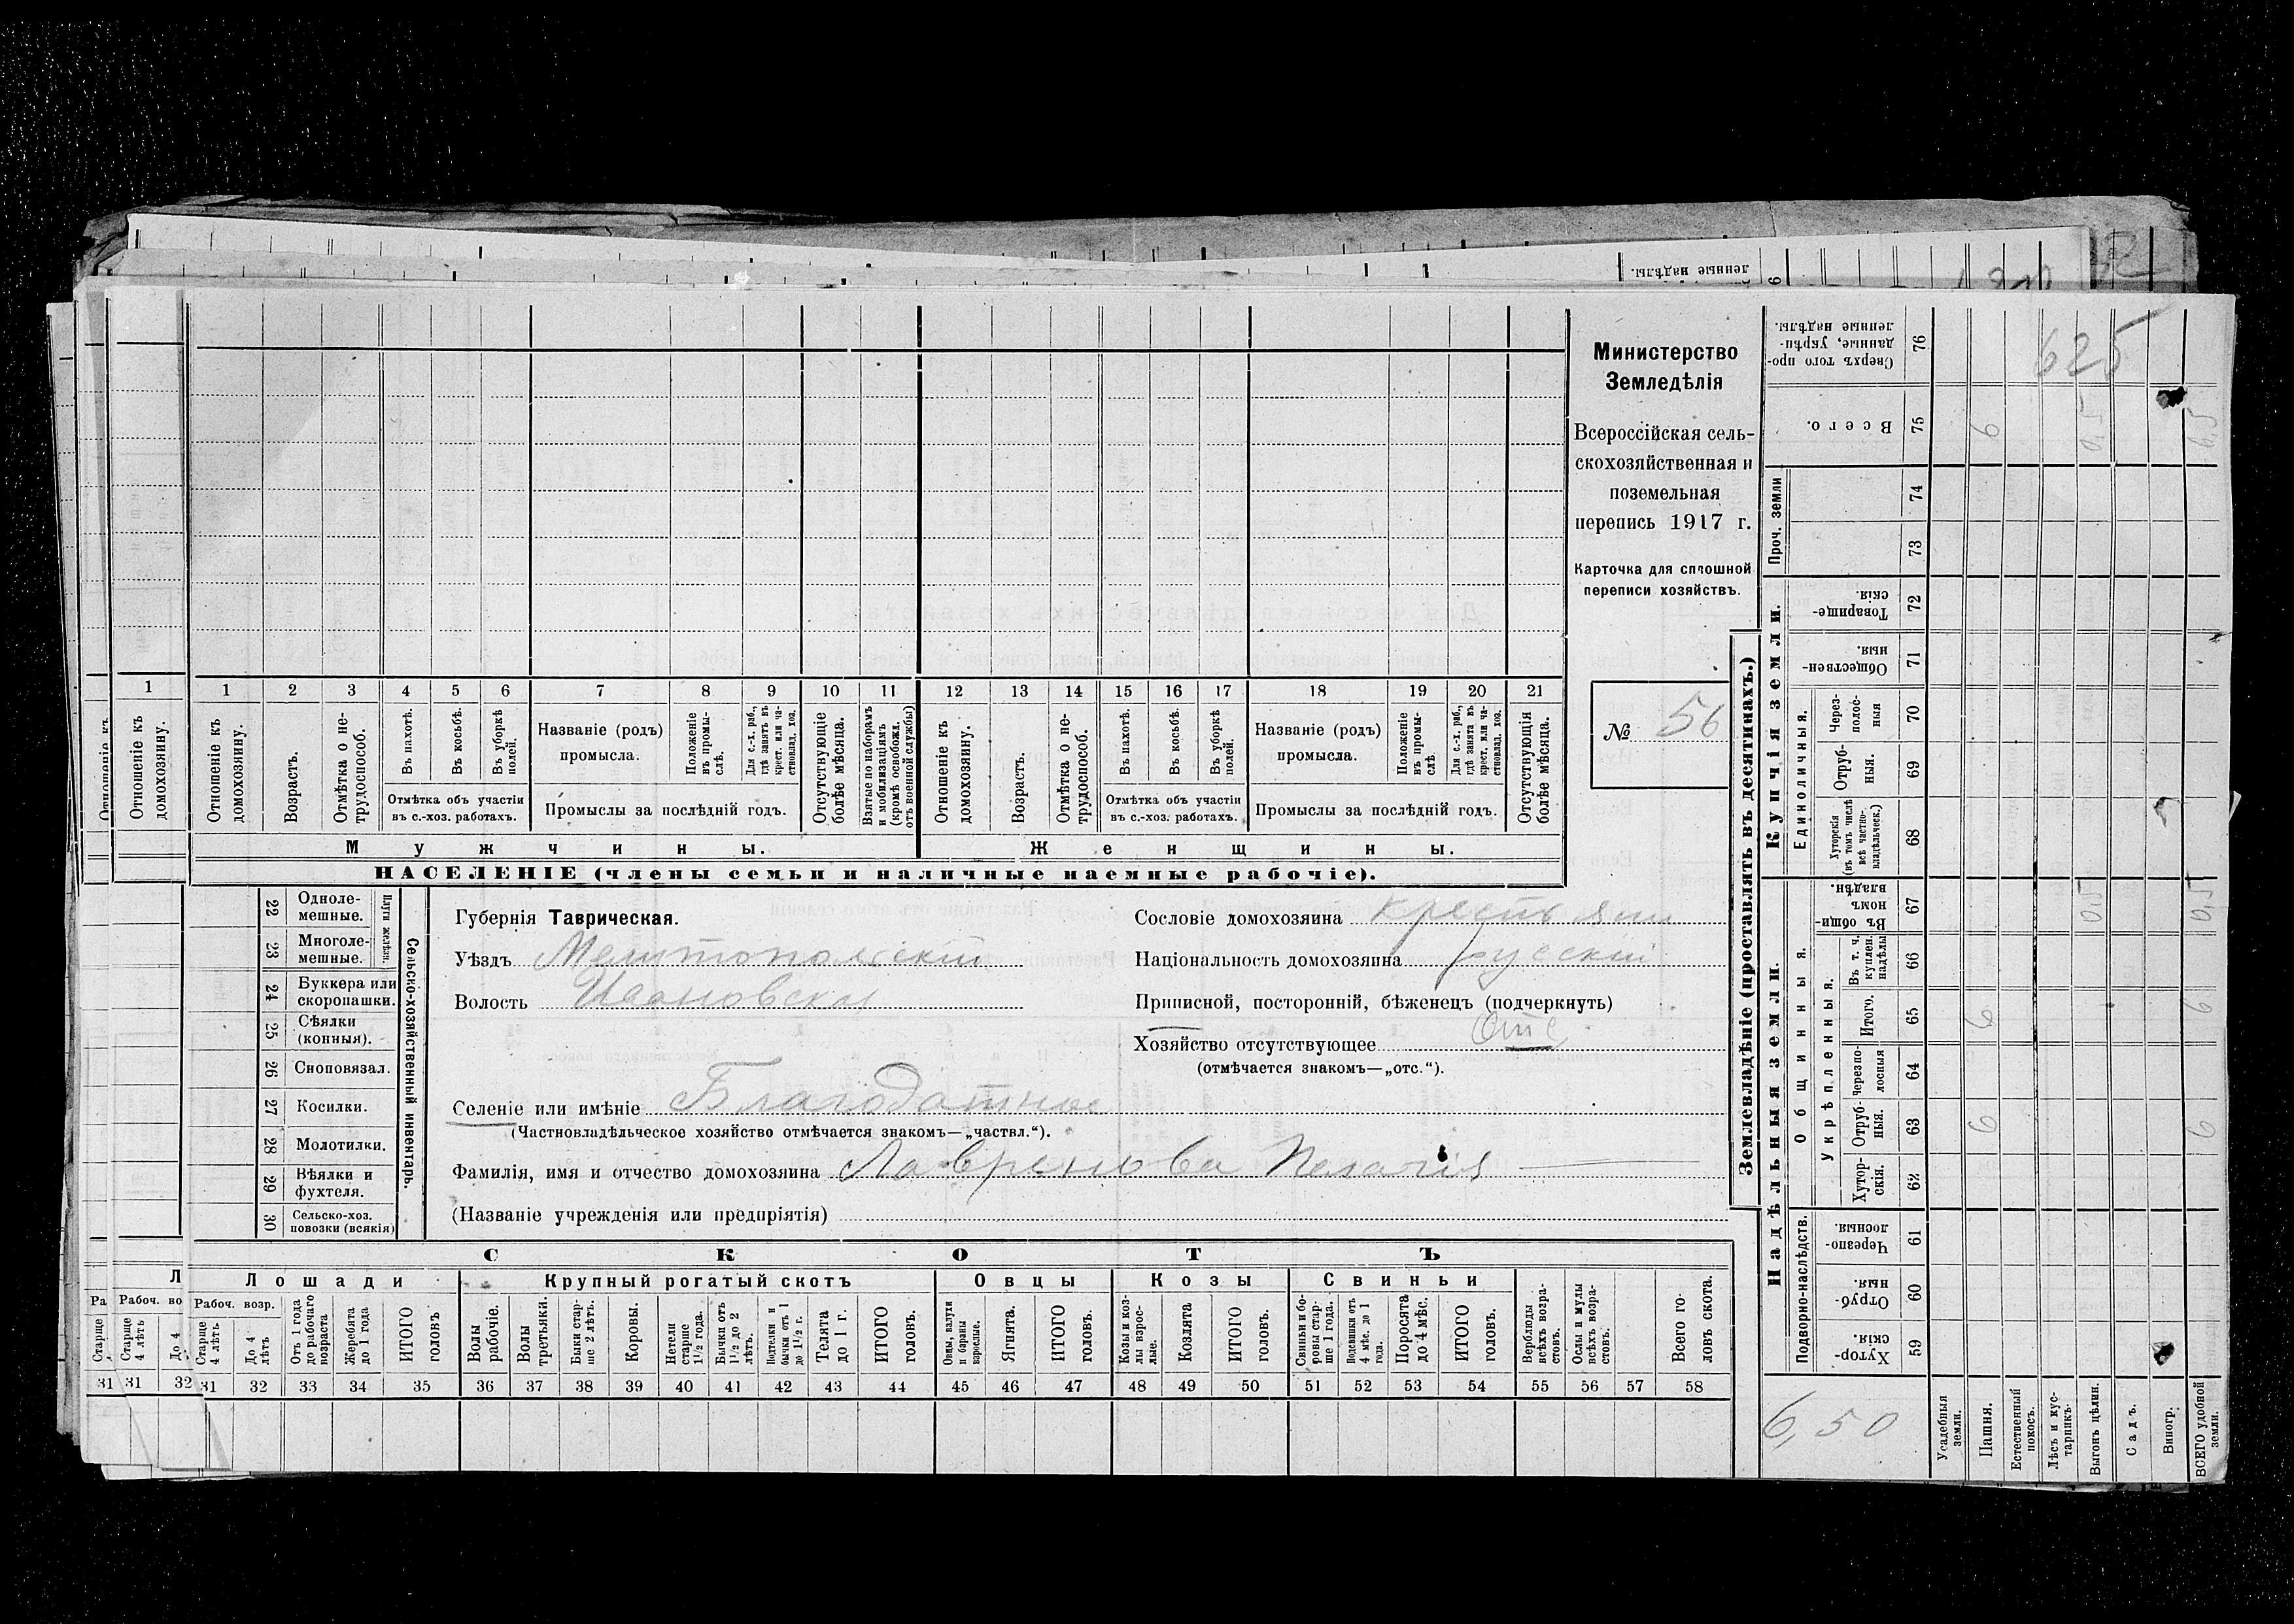 Министерство
Земледѣлія
Всероссійская сель-
скохозяйственная и
поземельная
перепись 1917 г.
Карточка для сплошной
переписи хозяйствъ.
№ 56
1 2 3 4 5 6 7 8 9 10 11 12 13 14 15 16 17 18 19 20 21
Отношеніе къ домохозяину.
Возрастъ.
Отмѣтка о не-трудоспособ.
Въ пахотѣ.
Въ косьбѣ.
Въ уборкѣ полей.
Отмѣтка объ участіи
въ с.-хоз. работахъ.
Названіе (родъ)
промысла.
Положеніе въ промы-слѣ.
Для с.-х. раб., гдѣ занятъ въ крест. или ча-ствовлад. хоз.
Промыслы за послѣдній годъ.
Отсутствующіе болѣе мѣсяца.
Взятые по наборамъ и мобилизаціямъ (кромѣ освобожд. отъ военной службы)
Отношеніе къ домохозяину.
Возрастъ.
Отмѣтка о не-трудоспособ.
Въ пахотѣ.
Въ косьбѣ.
Въ уборкѣ полей.
Отмѣтка объ участіи
въ с.-хоз. работахъ.
Названіе (родъ)
промысла.
Положеніе въ промы-слѣ
Для с.-х. раб., гдѣ занята въ крест. или ча-ствовлад. хоз.
Промыслы за послѣдній годъ.
Отсутствующія болѣе мѣсяца.
Мужчины. Женщины.
НАСЕЛЕНІЕ (члены семьи и наличные наемные рабочіе).
22 Одноле-мешные.
23 Многоле-мешные.
Плуги желѣзн.
24 Буккера или скоропашки.
25 Сѣялки (конныя).
26 Сноповязал.
27 Косилки.
28 Молотилки.
29 Вѣялки и фухтеля.
30 Сельско-хоз. повозки (всякія)
Сельско-хозяйственный инвентарь.
Губернія Таврическая.
Уѣздъ Мелитопольскій
Волость Ивановская
Сословіе домохозяина крестьян
Національность домохозяина русскій
Приписной, посторонній, бѣженецъ (подчеркнуть)
Хозяйство отсутствующее отс
(отмѣчается знакомъ—„отс.“).
Селеніе или имѣніе Благодатное
(Частновладѣльческое хозяйство отмѣчается знакомъ—„частвл.“).
Фамилія, имя и отчество домохозяина Лавренова Пелагія
(Названіе учрежденія или предпріятія)
СКОТЪ
Лошади Крупный рогатый скотъ Овцы Козы Свиньи
Рабоч. возр.
Старще 4 лѣтъ
До 4 лѣтъ
Отъ 1 года до рабочаго возраста
Жеребята до 1 года
ИТОГО головъ
Волы рабочіе.
Волы третьяки.
Быки стар-ше 2 лѣтъ.
Коровы.
Нетели старше 1½ года.
Бычки отъ 1½ до 2 лѣтъ.
Подтелки и бычки отъ 1 до 1½ г.
Телята до 1 г.
ИТОГО головъ.
Овцы, валухи и бараны взрослые.
Ягнята.
ИТОГО головъ.
Козы и коз-лы взрос-лые.
Козлята
ИТОГО головъ.
Свиньи и бо-ровы стар-ше 1 года.
Подсвинки отъ 4 мѣс. до 1 года.
Поросята до 4 мѣс.
ИТОГО головъ.
Верблюды всѣхъ возра-стовъ.
Ослы и мулы всѣхъ возра-стовъ.
Всего го-ловъ скота.
31 32 33 34 35 36 37 38 39 40 41 42 43 44 45 46 47 48 49 50 51 52 53 54 55 56 57 58
Землевладѣніе (проставлять въ десятинахъ.)
Надѣльныя земли. Купчія земли. Проч. земли
Подворно-наслѣдств.
Общинныя.
Укрѣпленныя.
Единоличныя.
Сверхъ того про-данные, укрѣп-ленные надѣлы. 76 625
Всего. 75 6 0,5 6,5
74
73
Товарище-скія. 72
Обществен-ныя. 71
Через-полос-ныя 70
Отруб-ныя. 69
Хуторскія (въ томъ числѣ всѣ частно-владѣльческ.) 68
Въ общи-номъ владѣн. 67 0,5 0,5
Въ т. ч. куплен. надѣлы 66
Итого. 65 6 6
Черезпо-лосныя 64
Отруб-ныя. 63 6 6
Хутор-скія. 62
Черезпо-лосныя. 61
Отруб-ныя. 60
Хутор-скія. 59
6,50
Усадебныя земли.
Пашня.
Естественный покосъ.
Лѣсъ и кус-тарникъ.
Выгонъ цѣлин.
Садъ.
Виногр.
ВСЕГО удобной земли.